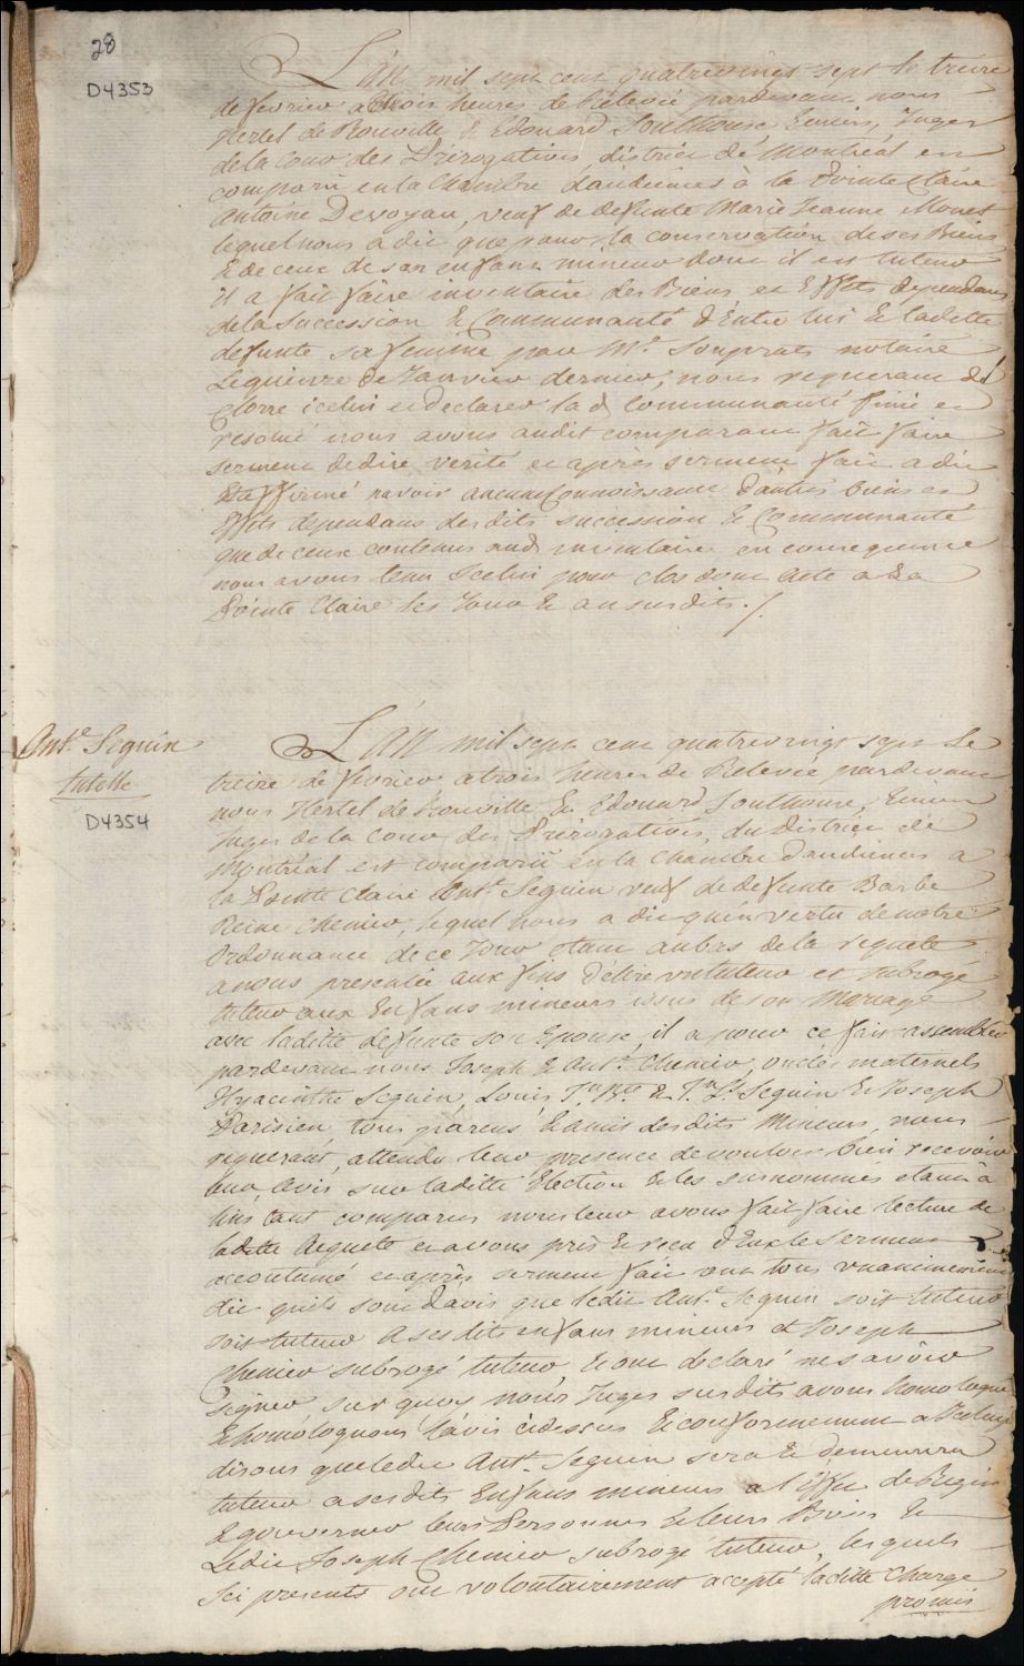 28
D4353
L'an mil sept cent quatrevingt sept le treize
de fevrier a trois heures de Relevée pardevant nous
hertel de Rouville & Edouard Southouse Ecuiers, Juges
de la Cour des Prérogatives, district de Montreal est
comparu en la Chambre d'audiences à la Pointe Claire
Antoine Devoyau, veuf de defunte Marie Jeanne Monet
lequel nous a dit que pour la conservation de ses Biens
& de ceux de son enfant mineur dont il est tuteur
il a fait faire inventaire des Biens et Effets dependans
de la Succession & Communauté d'Entre lui & laditte
defunte sa femme par Mr. Souprats notaire
Le quinze de Janvier dernier, nous requerant de
Clorre icelui et declarer lad. Communauté finie et
resolue nous avons audit comparant fait faire
serment de dire verité et après serment fait a dit
& affirmé n'avoir aucune Connoissance d'autres biens et
Effets dependans desdits succession & Communauté
que de ceux contenus aud. inventaire en consequence
nous avons tenu Icelui pour clos dont Acte a La
Pointe Claire les Jour & an susdits ./.
Ant.e Seguin
tutelle
D4354
L'An mil sept cent quatrevingt sept Le
treize de fevrier a trois heures de Relevée pardevant
nous Hertel de Rouville & Edouard Southouse, Ecuiers
Juges de la Cour des Prérogatives, du District de
Montréal est comparu en la Chambre d'audiences a
la Pointe Claire Ant.e Seguin veuf de defunte Barbe
Reine Chenier, lequel nous a dit qu'en vertu de notre
Ordonnance de ce Jour etant au bas de la requete
a nous presentée aux fins d'elire un tuteur et subrogé
tuteur aux Enfans mineurs issus de son Mariage
avec laditte defunte son Epouse, il a pour ce fait assembler
pardevant nous Joseph & Ant.e Chenier, oncles maternels
Hyacinthe Seguin, Louis, Jn. Bte. & Jn. Ls. Seguin & Joseph
Parisien tous parens & amis desdits Mineurs, nous
requerant, attendu leur presence de vouloir bien recevoir
leur Avis sur laditte Election & les surnommés etant à
l'instant comparus nous leur avons fait faire lecture de
laditte Requete et avons pris & reçu d'Eux le Serment
accoutumé et après serment fait ont tous unanimement
dit quils sont d'avis que ledit Ant.e Seguin soit tuteur
soit tuteur a sesdits enfans mineurs et Joseph
Chenier subrogé tuteur, & ont declaré ne savoir
signer sur quoy nous Juges susdits avons homologué
& homologuons l'avis cidessus & conformement a Icelui
disons que ledit Ant.e Seguin sera & demeurera
tuteur a sesdits Enfans mineurs a l'Effet de Regir
& gouverner leurs Personnes & leurs Biens &
Ledit Joseph Chenier subrogé tuteur, lesquels
Ici presents ont volontairement accepté laditte Charge
promis